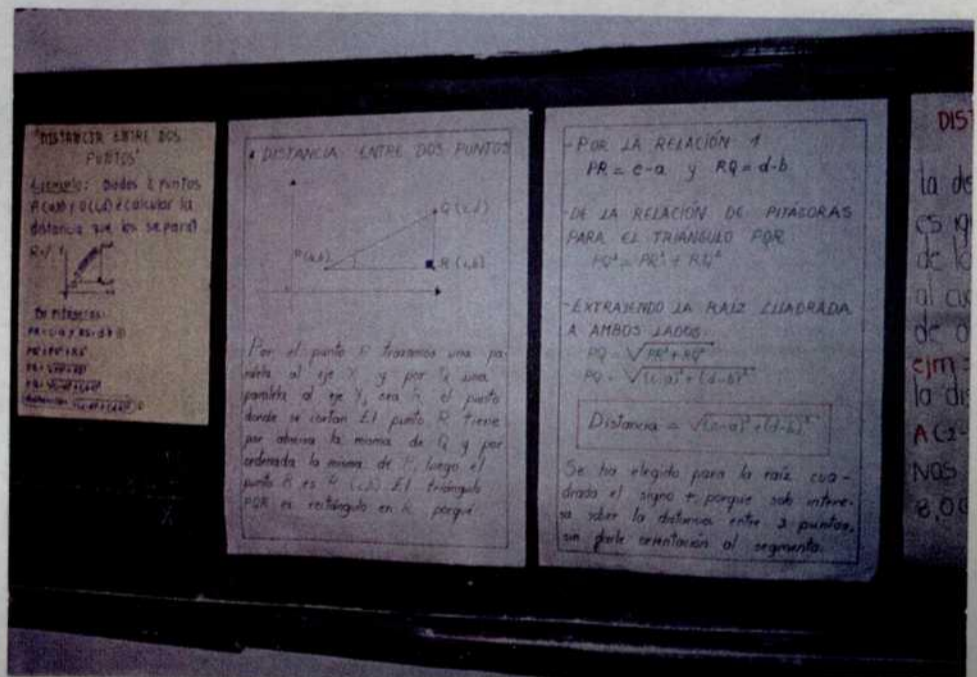 "DISTANCIA ENTRE DOS
PUNTOS"
Ejemplo: Dados 2 puntos
calcular la
distancia que los separa?
Por Pitágoras:
• DISTANCIA ENTRE DOS PUNTOS
Q (c,d)
P(a,b)
R (c,b)
Por el punto P trazamos una pa-
ralela al eje X y por Q una
paralela al eje Y, sea R el punto
donde se cortan. El punto R tiene
por abscisa la misma de Q y por
ordenada la misma de P, luego el
punto R es R (c,b). El triángulo
PQR es rectángulo en R porque
-POR LA RELACIÓN 1
PR = c-a y RQ = d-b
-DE LA RELACIÓN DE PITÁGORAS
PARA EL TRIÁNGULO PQR
PQ² = PR² + RQ²
-EXTRAYENDO LA RAÍZ CUADRADA
A AMBOS LADOS:
PQ = √PR² + RQ²
PQ = √(c-a)² + (d-b)²
Distancia = √(c-a)² + (d-b)²
Se ha elegido para la raíz cua-
drada el signo + porque solo intere-
sa saber la distancia entre 2 puntos,
sin darle orientación al segmento.
DIST
la de
es ig
de lo
al cu
de
ejm:
la dis
A(2-
NOS
8,00